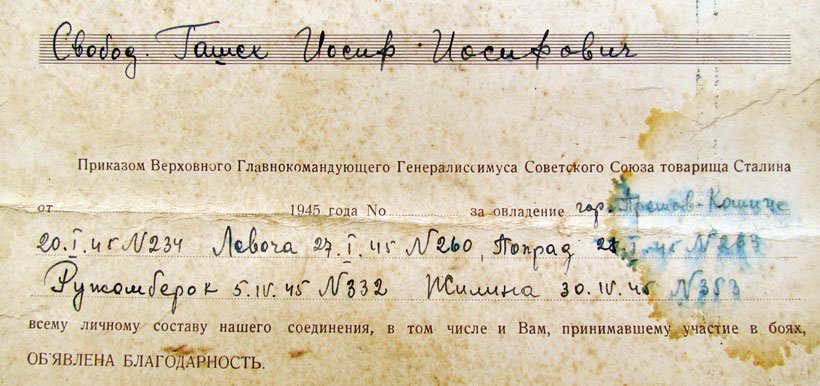 Свобод. Гашек Иосиф Иосифович
Приказом Верховного Главнокомандующего Генералиссимуса Советского Союза товарища Сталина
от 1945 года No за овладение гор. Прешов-Кошице
20.I.45 N234 Левоча 27.I.45 N260, Попрад 28.I.45 N263
Ружомберок 5.IV.45 N332 Жилина 30.IV.45 N353
всему личному составу нашего соединения, в том числе и Вам, принимавшему участие в боях,
ОБ'ЯВЛЕНА БЛАГОДАРНОСТЬ.